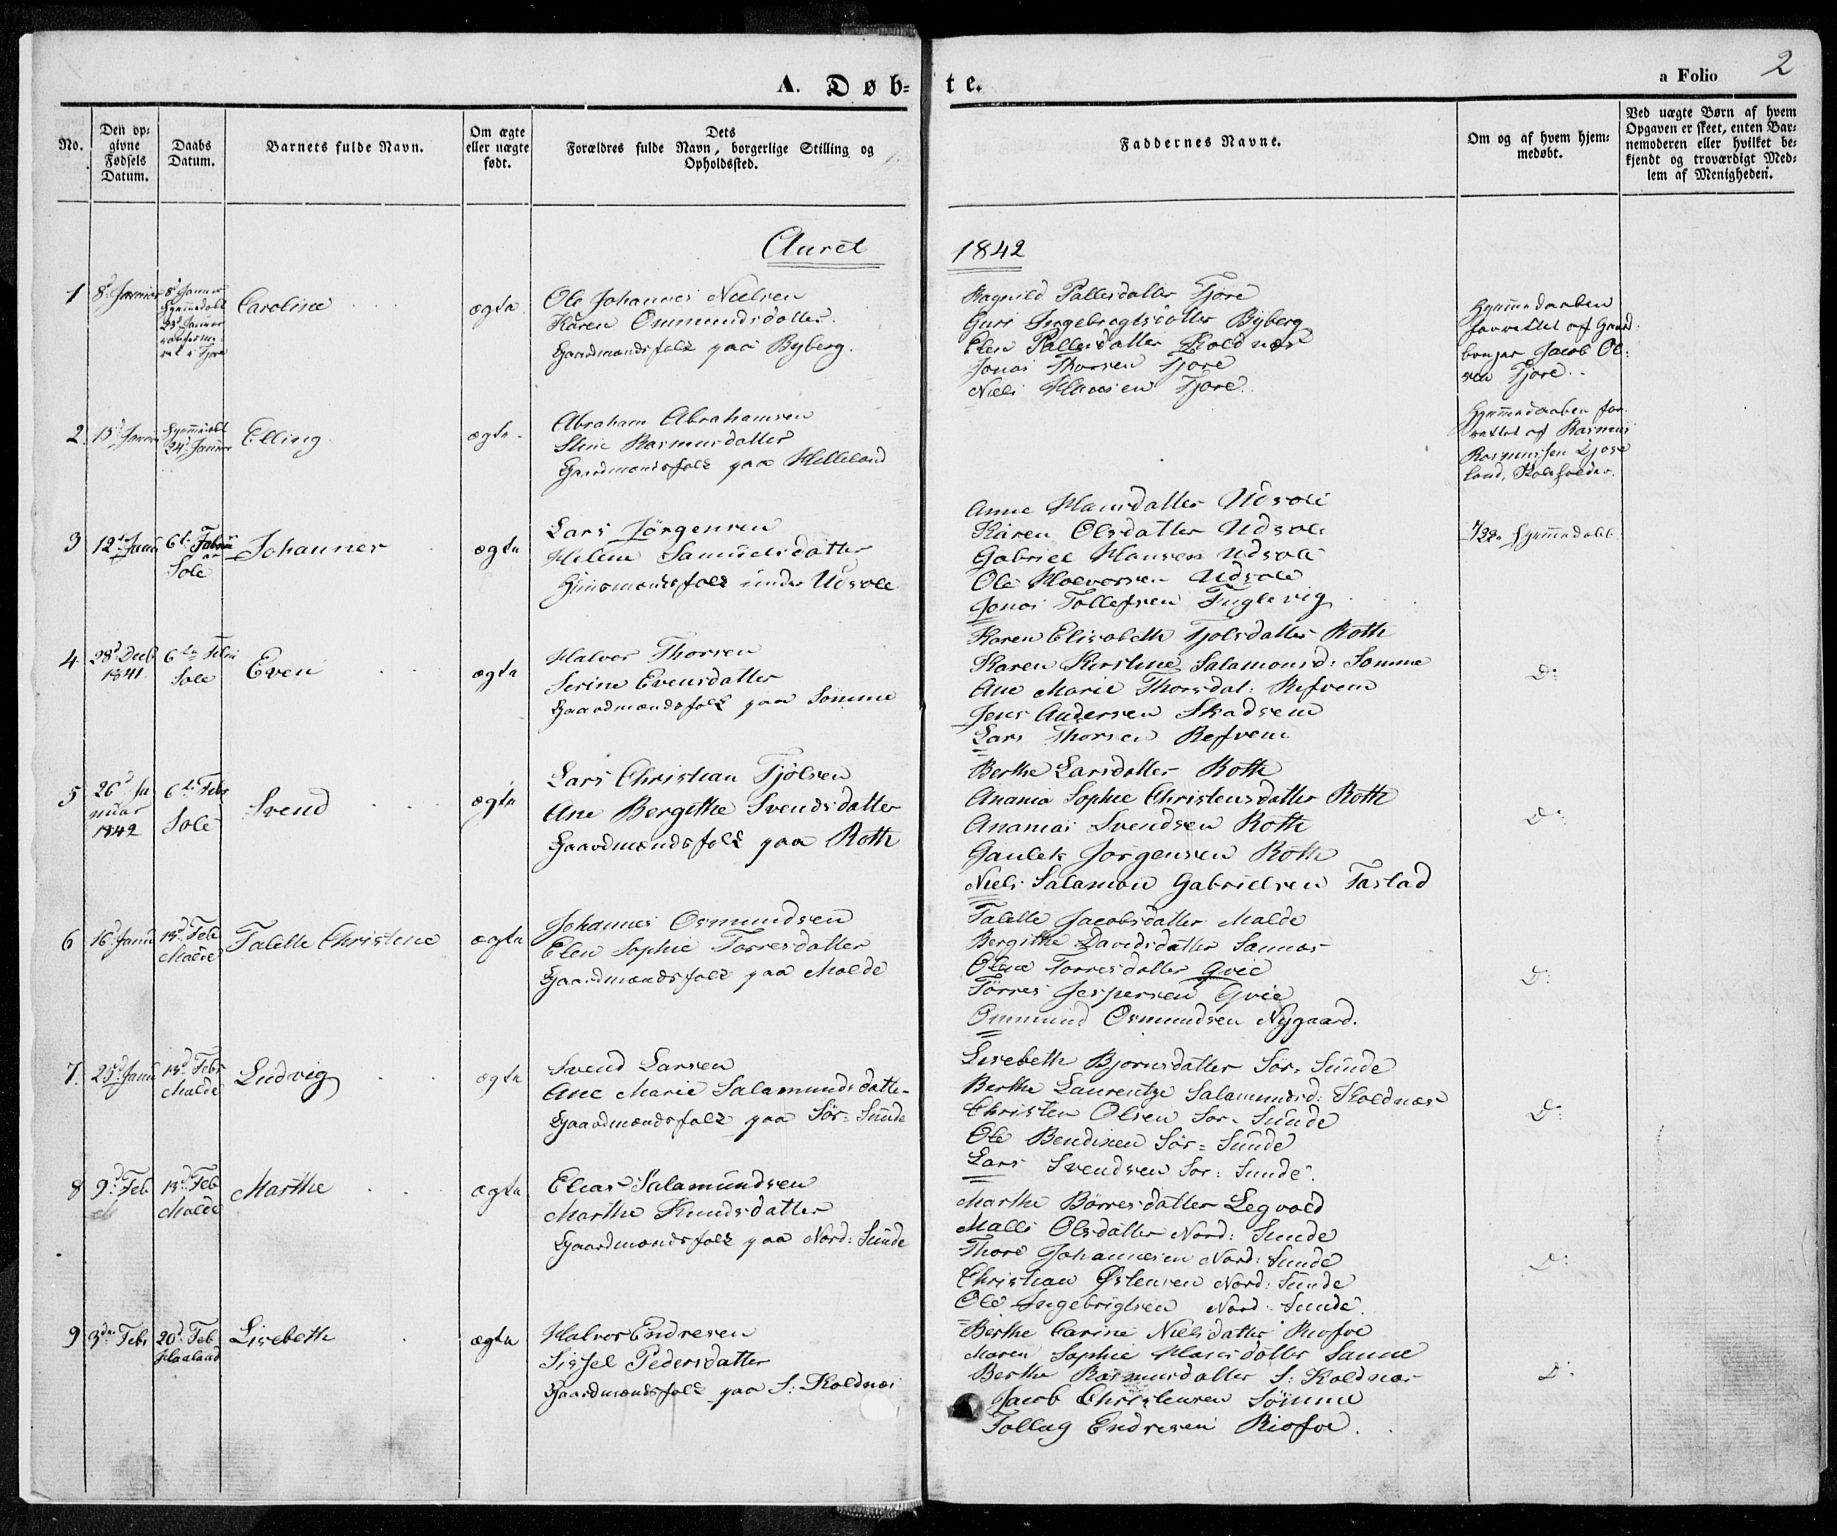 A. Døb=
te.
a Folio 2
No.
Den op=
givne
Fødsels
Datum.
Daabs
Datum.
Barnets fulde Navn.
Om ægte
eller uægte
født.
Dets
Forældres fulde Navn, borgerlige Stilling og
Opholdssted.
Faddernes Navne.
Om og af hvem hjem=
medøbt.
Ved uægte Børn af hvem
Opgaven er skeet, enten Bar=
nemoderen eller hvilket be=
kjendt og troværdigt Med=
lem af Menigheden.
Aaret
1842
1
8d Januar
8d Januar
Hjemmedøbt
Caroline
ægte
Ole Johannes Nielsen
Karen Ommundsdatter
Gaardmandsfolk paa Byberg.
Ragnild Pallesdatter Tjore
Guri Ingebregtsdatter Byberg
Elen Pallesdatter Koldnæs
Jonas Thorsen Tjore
Niels Hansen Tjore.
Hjemmedaaben
forrettet af Gaard=
bruger Jacob Ol=
sen Tjore.
2
15d Januar
Hjemmedøbt
24d Januar
Elling
ægte.
Abraham Abrahamsen
Stine Rasmusdatter
Gaardmandsfolk paa Helleland
Hjemmedaaben for
rettet af Rasmus
Rasmussen
land, Skoleholder.
3
12te Janu
6te Februar
Sole
Johannes
ægte
Lars Jørgensen
Helene Samuelsdatter
Huusmandsfolk under Udsole
Anne Hansdatter Udsole
Karen Olsdatter Udsole
Gabriel Hansen Udsole
Ole Halvorsen Udsole
Jonas Tollefsen Fuglevig
Hjemmedøbt
4
28d Decb
1841.
6te Febr
Sole
Even
ægte
Halvor Thorsen
Serine Evensdatter
Gaardmandsfolk paa Somme
Karen Elisabeth Tjolsdatter Roth
Karen Kirstine Salamonsd: Somme
Ane Marie Thorsdat: Refvem
Jens Andersen Skadsem
Lars Thorsen Refvem
D:
5
26d Ja
nuar
1842
6te Febr
Sole
Svend
ægte
Lars Christian Tjølsen
Ane Bergithe Svendsdatter
Gaardmandsfolk paa Roth
Berthe Larsdatter Roth
Anania Sophie Christensdatter Roth
Ananias Svendsen Roth
Gaulek Jørgensen Roth
Niels Salamon Gabrielsen Tastad
D:
6
16d Janu
13d Feb
Malde
Talette Christine
ægte
Johannes Osmundsen
Elen Sophie Torresdatter
Gaardmandsfolk paa Malde
Talette Jacobsdatter Malde
Bergithe Davidsdatter Sannæs
Olene Torresdatter Qvie
Tørres Jespersen Qvie
Ommund Osmundsen Nygaard.
D:
7.
25d Janu
13d Febr
Malde
Ludvig
ægte
Svend Larsen
Ane Marie Salamundsdatter
Gaardmandsfolk paa Sør=Sunde
Lisebeth Bjornsdatter Sør=Sunde
Berthe Laurentze Salamundsd: Koldnæs
Christen Olsen Sør=Sunde
Ole Bendixen Sør=Sunde
Lars Svendsen Sør=Sunde.
D:
8
9d Feb
13d Feb
Malde
Marthe
ægte
Elias Salamundsen
Marthe Knudsdatter
Gaardmandsfolk paa Nord=Sunde
Marthe Børresdatter Legvold
Malli Olsdatter Nord=Sunde
Thore Johannesen Nord=Sunde
Christian Østensen Nord=Sunde
Ole Ingebrigtsen Nord=Sunde.
D:
9
3die Febr
20d Feb
Haaland
Lisebeth
ægte
Halvor Endresen
Sissel Pedersdatter
Gaardmandsfolk paa S: Koldnæs
Berthe Carine Nielsdatter Risfoe
Maren Sophie Hansdatter Sanne
Berthe Rasmusdatter S: Koldnæs
Jacob Christensen Sømme
Tollag Endresen Risfoe.
D: